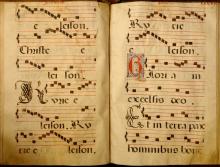 leison.
Christe e
leison.
Kyrie e
leison, Ky
rie e leison.
Ky rie
e leison.
Gloria in
excelsis deo.
Et in terra pax
hominibus bone